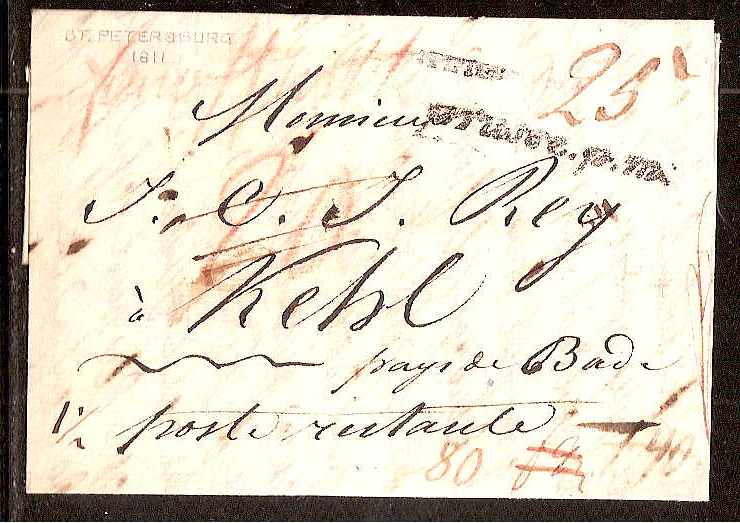 ST. PETERSBURG
1811
25
Monsieur
J. C. J. Rey
à Kehl
pays de Bade
poste restante
80